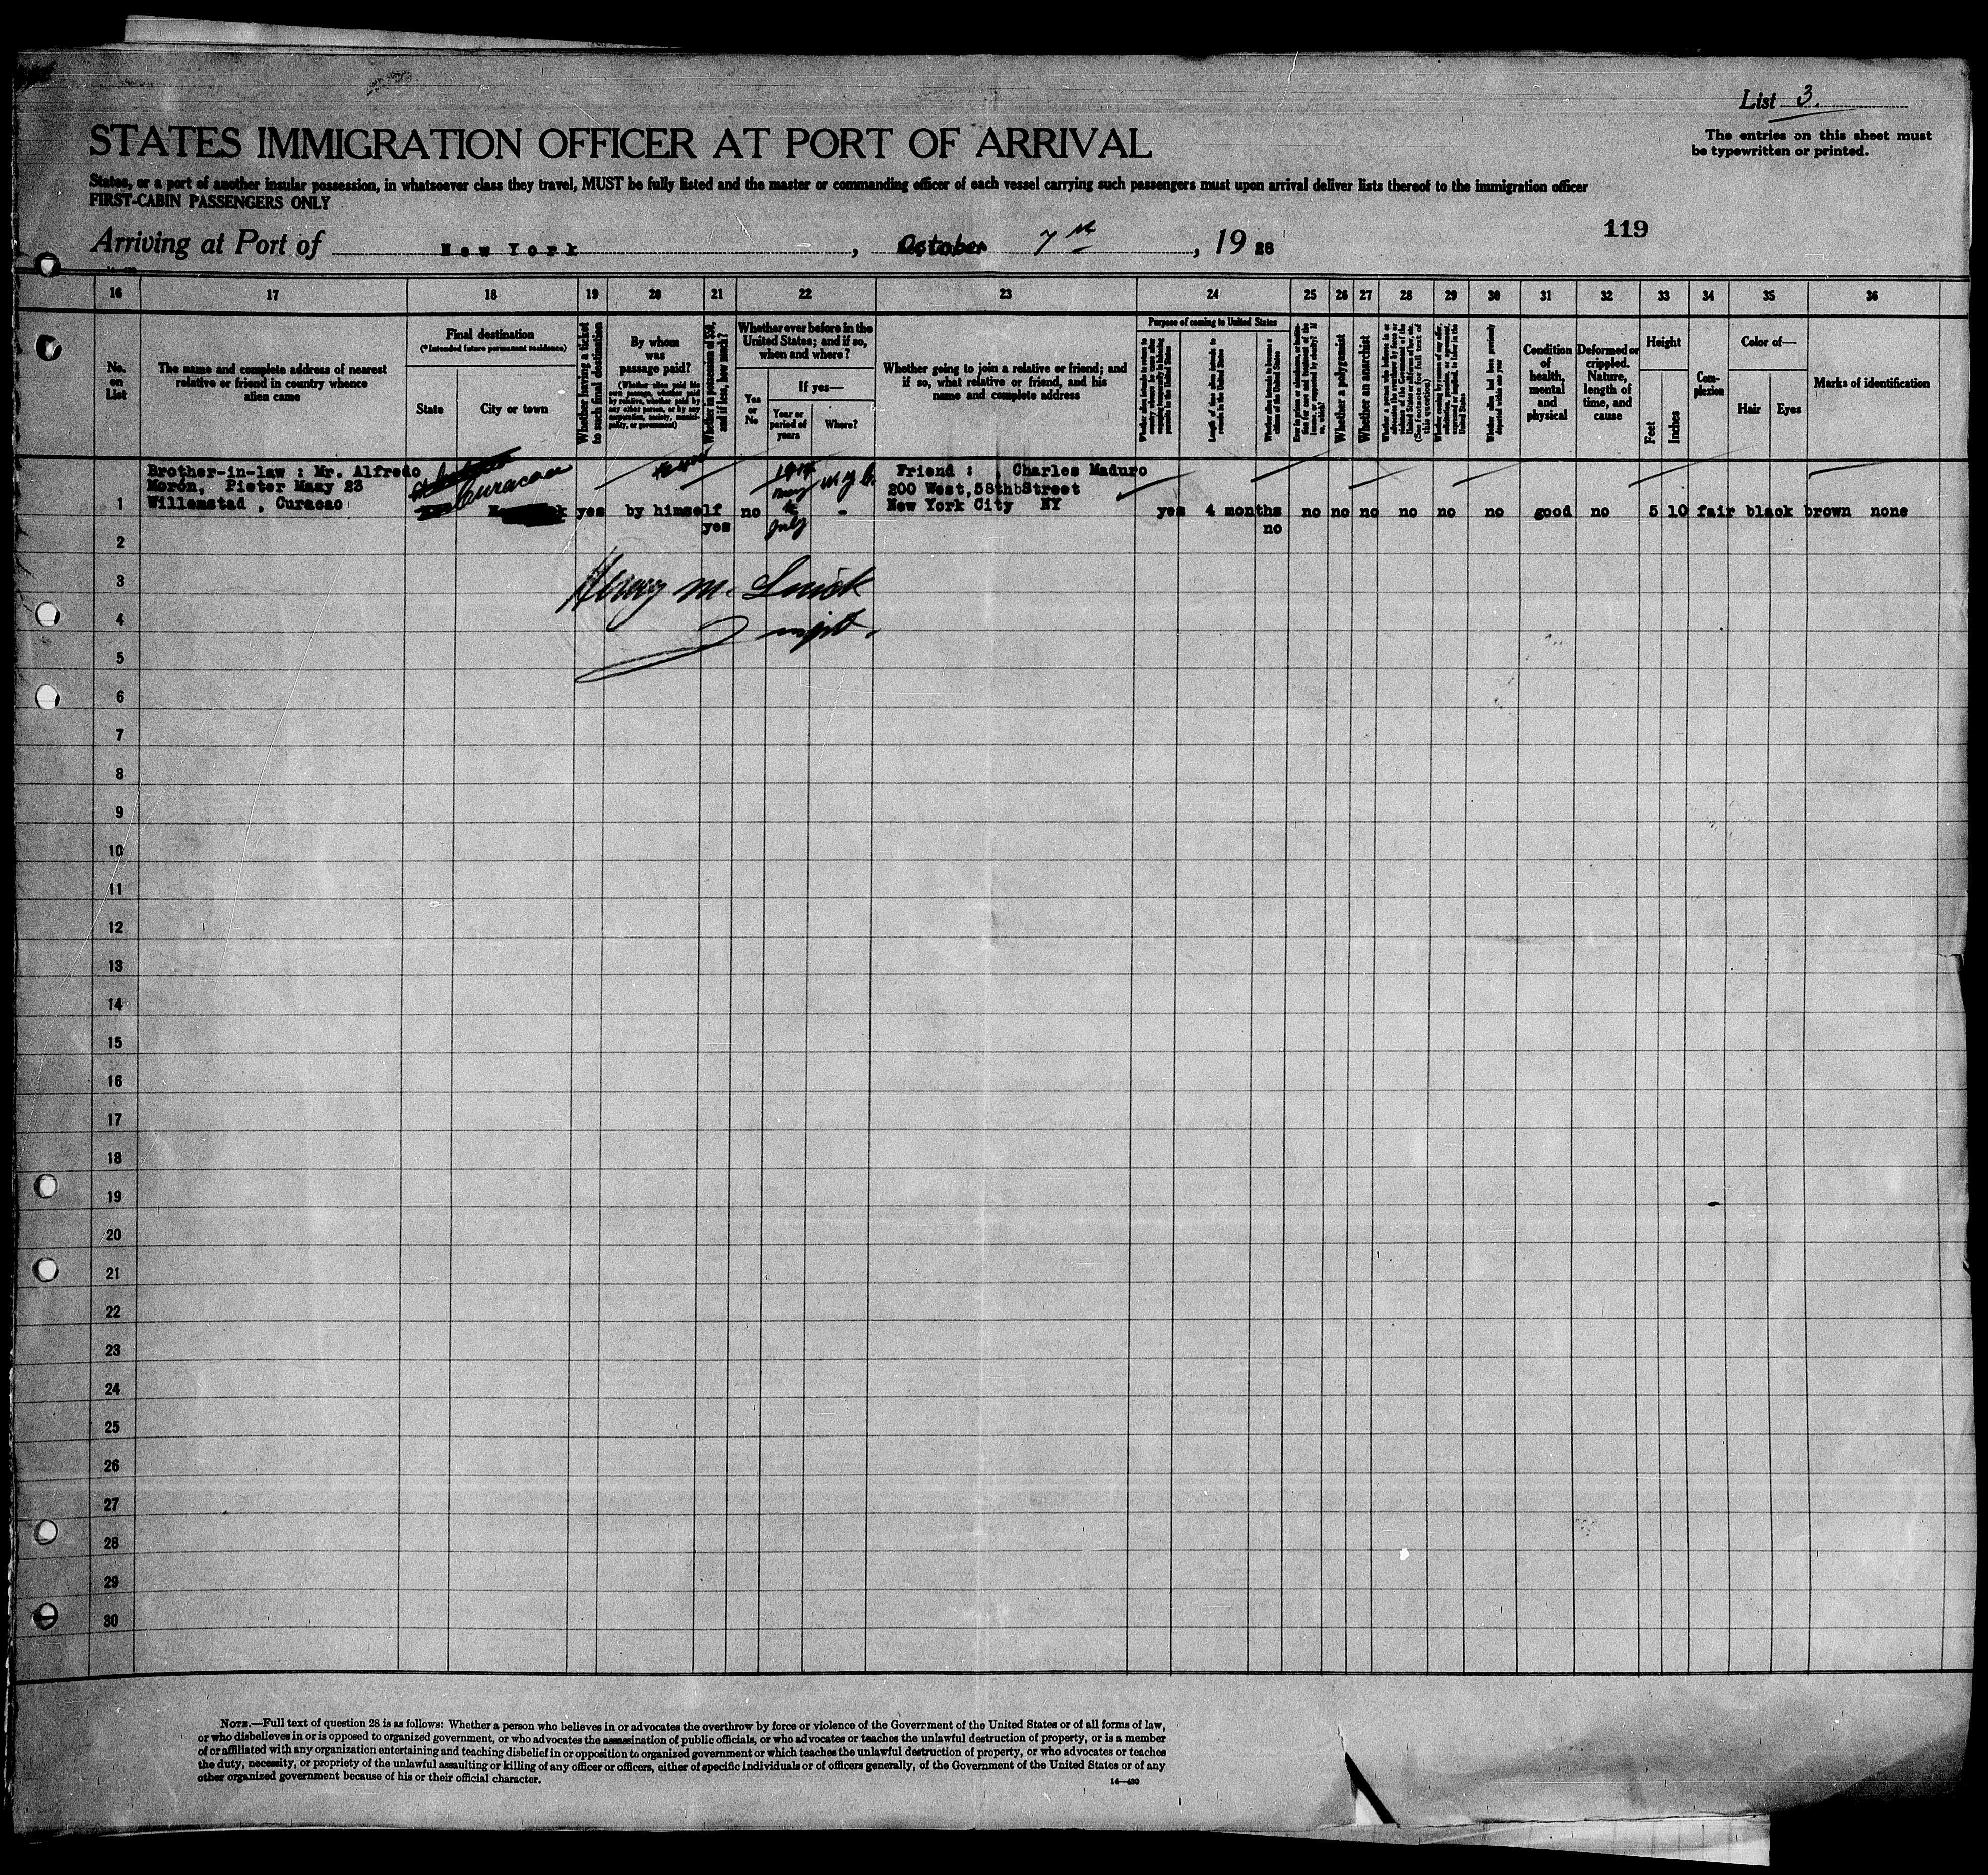 List 3.
STATES IMMIGRATION OFFICER AT PORT OF ARRIVAL
The entries on this sheet must
be typewritten or printed.
States, or a port of another insular possession, in whatsoever class they travel, MUST be fully listed and the master or commanding officer of each vessel carrying such passengers must upon arrival deliver lists thereof to the immigration officer
FIRST-CABIN PASSENGERS ONLY
119
Arriving at Port of New York, October 7th, 1928
16 17 18 19 20 21 22 23 24 25 26 27 28 29 30 31 32 33 34 35 36
No. on List
The name and complete address of nearest
relative or friend in country whence
alien came
Final destination
(*Intended future permanent residence)
State
City or town
Whether having a ticket
to such final destination
By whom
was
passage paid?
(Whether alien paid his
own passage, whether paid
by relative, whether paid by
any other person, or by any
corporation, society, munici-
pality, or government)
Whether in possession of $50,
and if less, how much?
Whether ever before in the
United States; and if so,
when and where?
Yes
or
No
If yes—
Year or
period of
years
Where?
Whether going to join a relative or friend; and
if so, what relative or friend, and his
name and complete address
Purpose of coming to United States
Length of time alien intends to
remain in the United States
Whether alien intends to become a
citizen of the United States
Whether a polygamist
Whether an anarchist
Whether alien had been previously
deported within one year
Condition
of
health,
mental
and
physical
Deformed or
crippled.
Nature,
length of
time, and
cause
Height
Feet
Inches
Com-
plexion
Color of—
Hair
Eyes
Marks of identification
Brother-in-law : Mr. Alfredo
Morón, Pieter Maay 23
Willemstad , Curacao
Curacao
1 yes by himself yes no - 
May
to
July
N.Y.C.
Friend : Charles Maduro
200 West,58thbStreet
New York City NY
yes 4 months no no no no no no no good no 5 10 fair black brown none
2
3
4
5
6
7
8
9
10
11
12
13
14
15
16
17
18
19
20
21
22
23
24
25
26
27
28
29
30
Henry M.
Insp.
NOTE.—Full text of question 28 is as follows: Whether a person who believes in or advocates the overthrow by force or violence of the Government of the United States or of all forms of law,
or who disbelieves in or is opposed to organized government, or who advocates the assassination of public officials, or who advocates or teaches the unlawful destruction of property, or is a member
of or affiliated with any organization entertaining and teaching disbelief in or opposition to organized government or which teaches the unlawful destruction of property, or who advocates or teaches
the duty, necessity, or propriety of the unlawful assaulting or killing of any officer or officers, either of specific individuals or of officers generally, of the Government of the United States or of any
other organized government because of his or their official character.
14—430